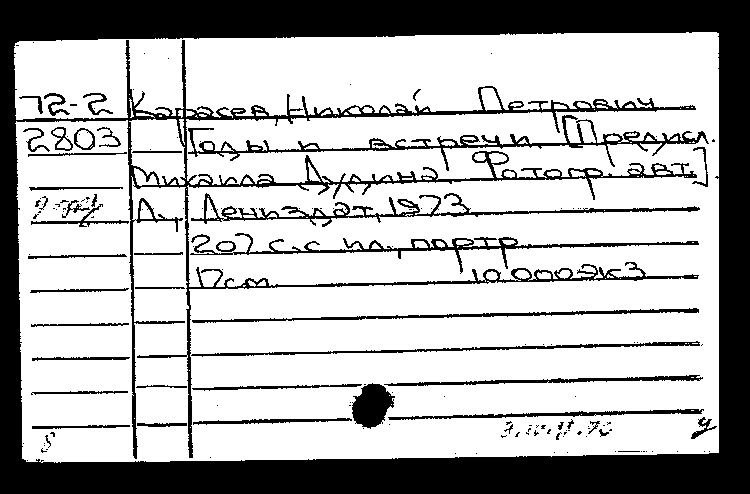 72-2 Карасев, Николай Петрович
2803 Годы и встречи. [Предисл.
Михаила Дудина. Фотогр. авт.].
Л., Лениздат, 1973
207 с. с ил., портр.
17см 10.000экз
8